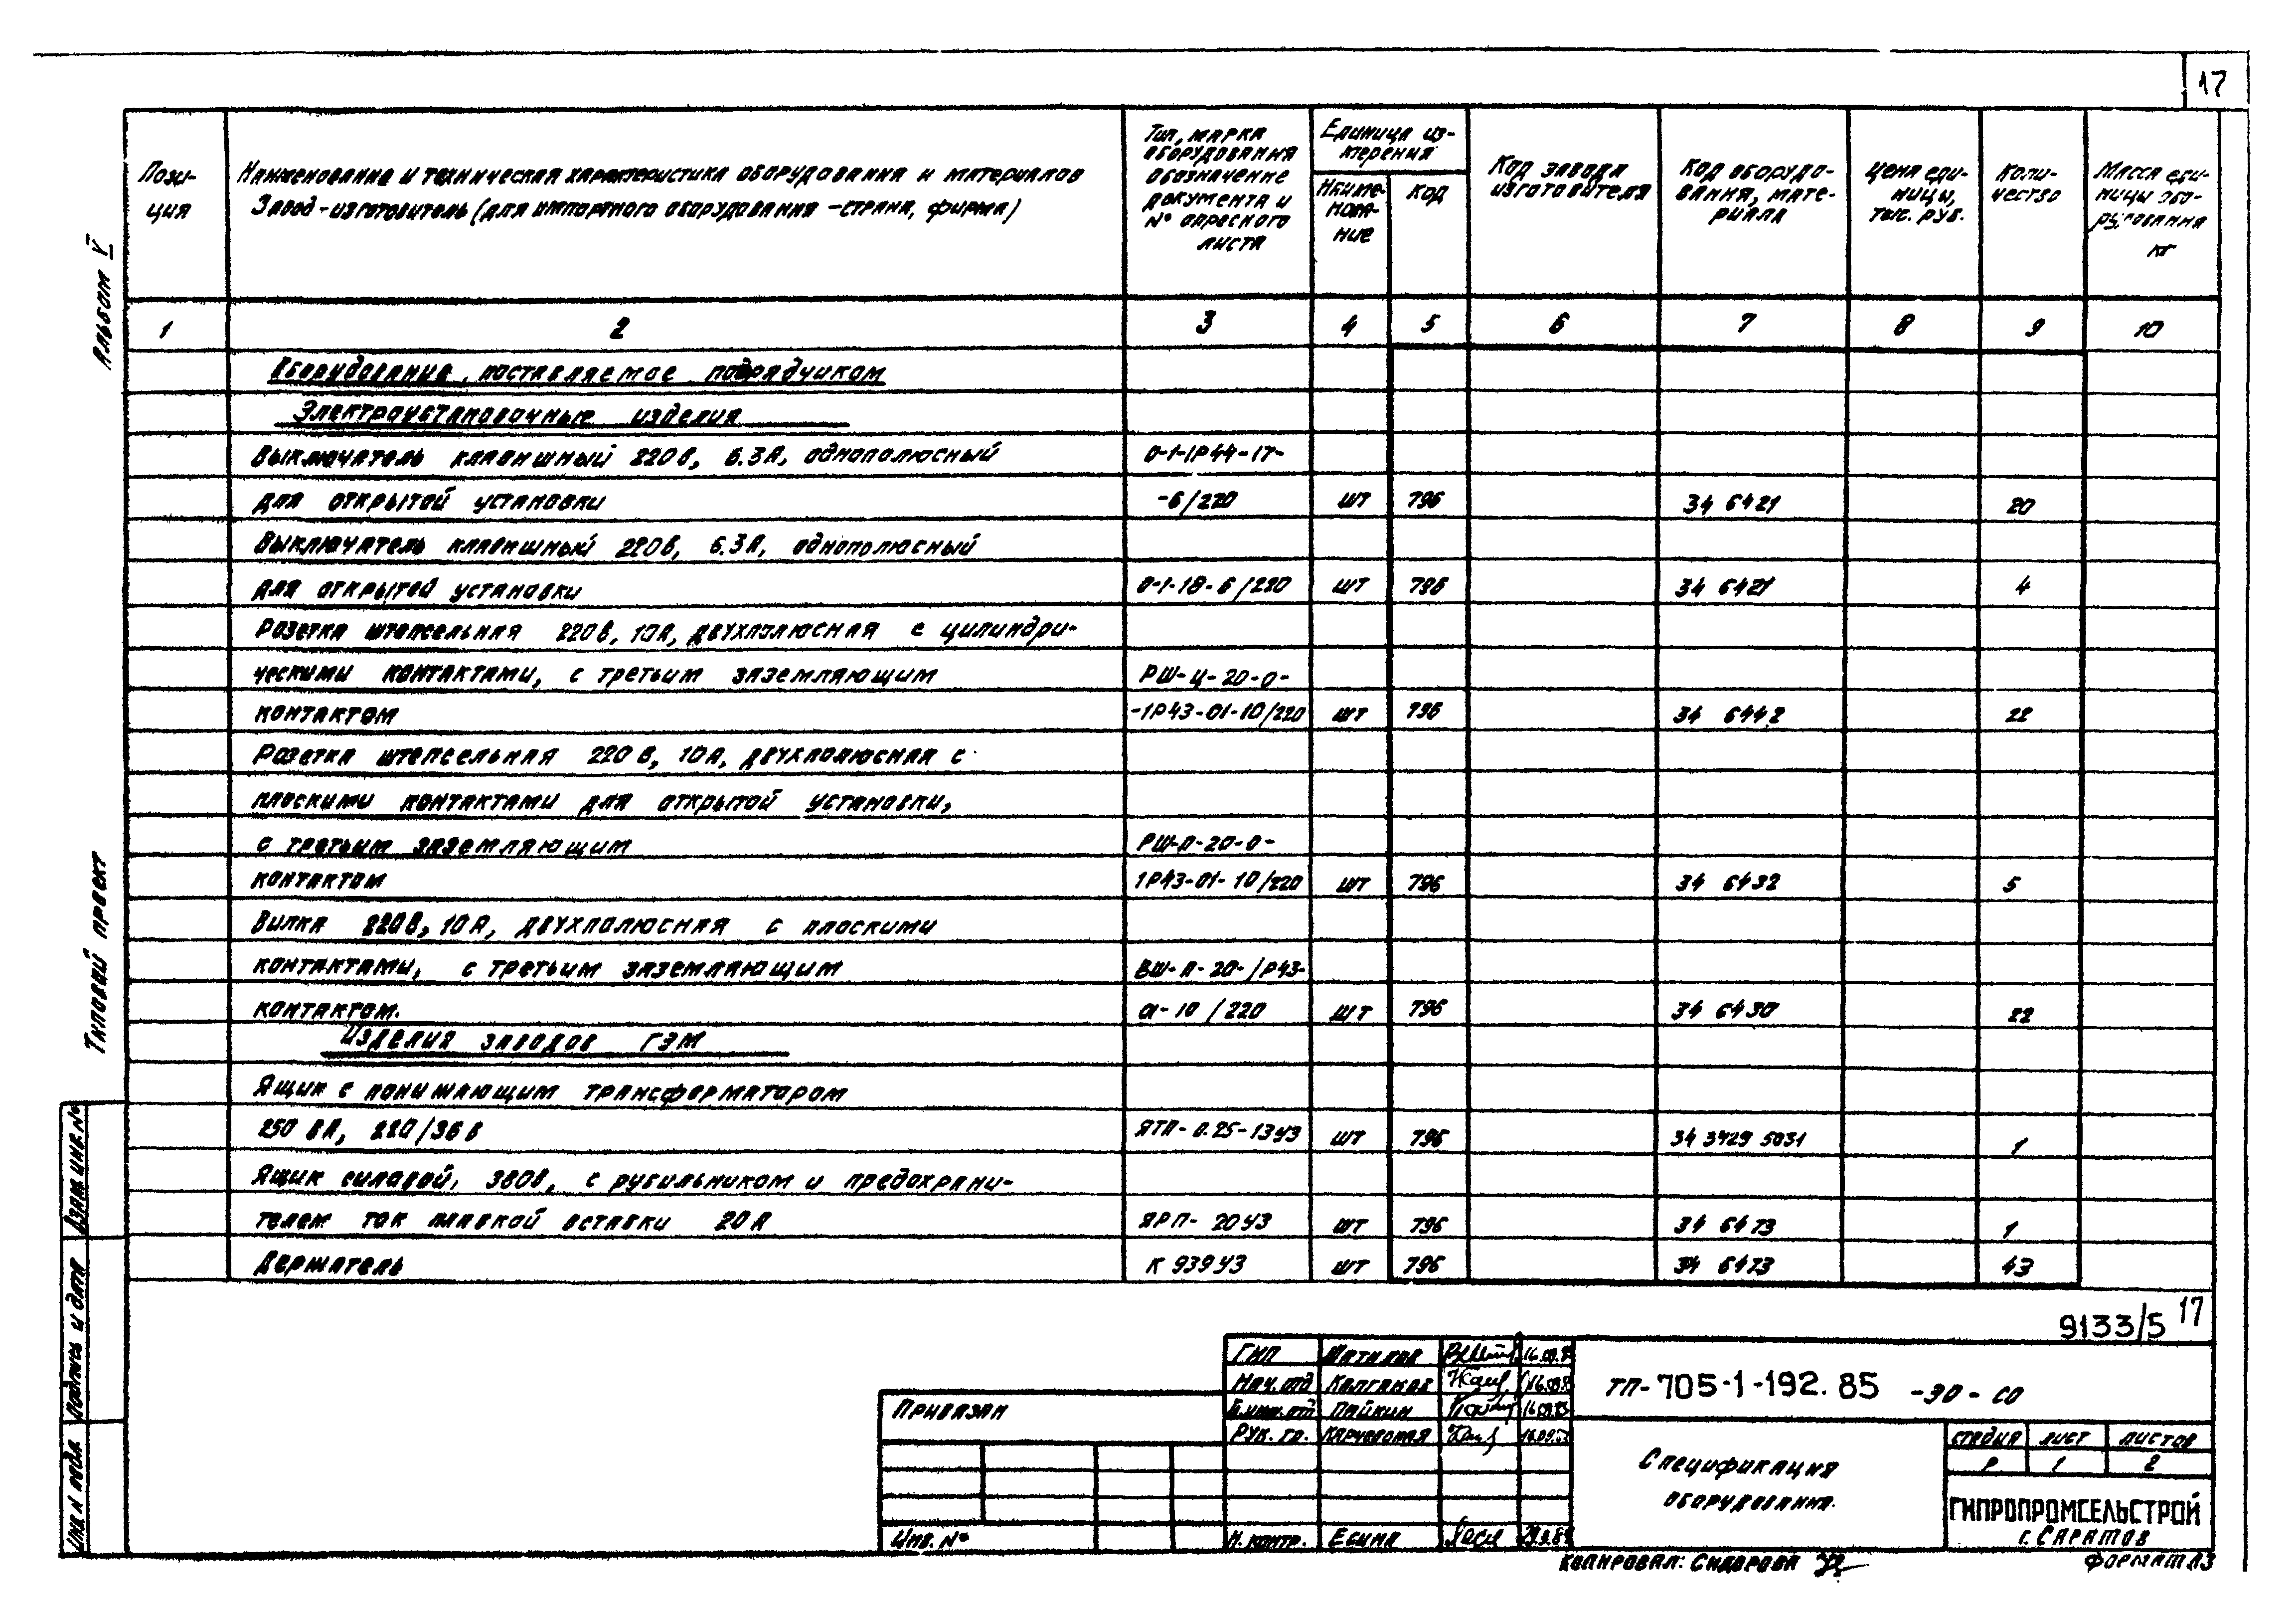 17
Пози-
ция
Наименование и техническая характеристика оборудования и материалов
Завод-изготовитель (для импортного оборудования -страна, фирма)
Тип, марка
оборудования
обозначение
документа и
№ опросного
листа
Единица из-
мерения
Наиме-
нова-
ние
код
Код завода
изготовителя
Код оборудо-
вания, мате-
риала
Цена еди-
ницы,
тыс. руб.
Коли-
чество
Масса еди-
ницы обо-
рудования
кг
1 2 3 4 5 6 7 8 9 10
Оборудование, поставляемое подрядчиком
Электроустановочные изделия
Выключатель клавишный 220в, 6.3А, однополюсный 0-1-1Р44-17-
для открытой установки -6/220 шт 796 34 6421 20
Выключатель клавишный 220в, 6.3А, однополюсный
для открытой установки 0-1-18-6/220 шт 796 34 6421 4
Розетка штепсельная 220в, 10А, двухполюсная с цилиндри-
ческими контактами, с третьим заземляющим РШ-Ц-20-0-
контактом -1Р43-01-10/220 шт 796 34 6442 22
Розетка штепсельная 220 в, 10А, двухполюсная с
плоскими контактами для открытой установки,
с третьим заземляющим РШ-П-20-0-
контактом 1Р43-01-10/220 шт 796 34 6432 5
Вилка 220в, 10А, двухполюсная с плоскими
контактами, с третьим заземляющим ВШ-п-20-1Р43-
контактом. 01-10/220 шт 796 34 6430 22
Изделия заводов ГЭМ
Ящик с понижающим трансформатором
250 ВА, 220/36 в ЯТП-0.25-13У3 шт 796 34 3429 5031 1
Ящик силовой, 380в, с рубильником и предохрани-
телем ток плавкой вставки 20А ЯРП-20У3 шт 796 34 6473 1
Держатель К 939У3 шт 796 34 6473 43
Альбом V
Типовой проект
Взам. инв. №
Подпись и дата
Инв. № подл
9133/5 17
Привязан
Инв. №
ГИП Шатилов 16.09.85
Нач. отд Колганов 16.09.85
Пайкин 16.09.85
Рук. гр. 16.09.85
Н. контр. Есина
ТП-705-1-192.85 -ЭО-СО
Спецификация
оборудования.
стадия лист листов
Р 1 2
ГИПРОПРОМСЕЛЬСТРОЙ
г. Саратов
Копировал: Сидорова
Формат А3